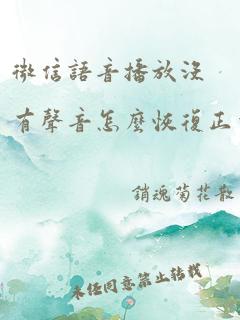 微信語音播放没
有聲音怎麼恢復正
銷魂菊花散
未经同意禁止转载